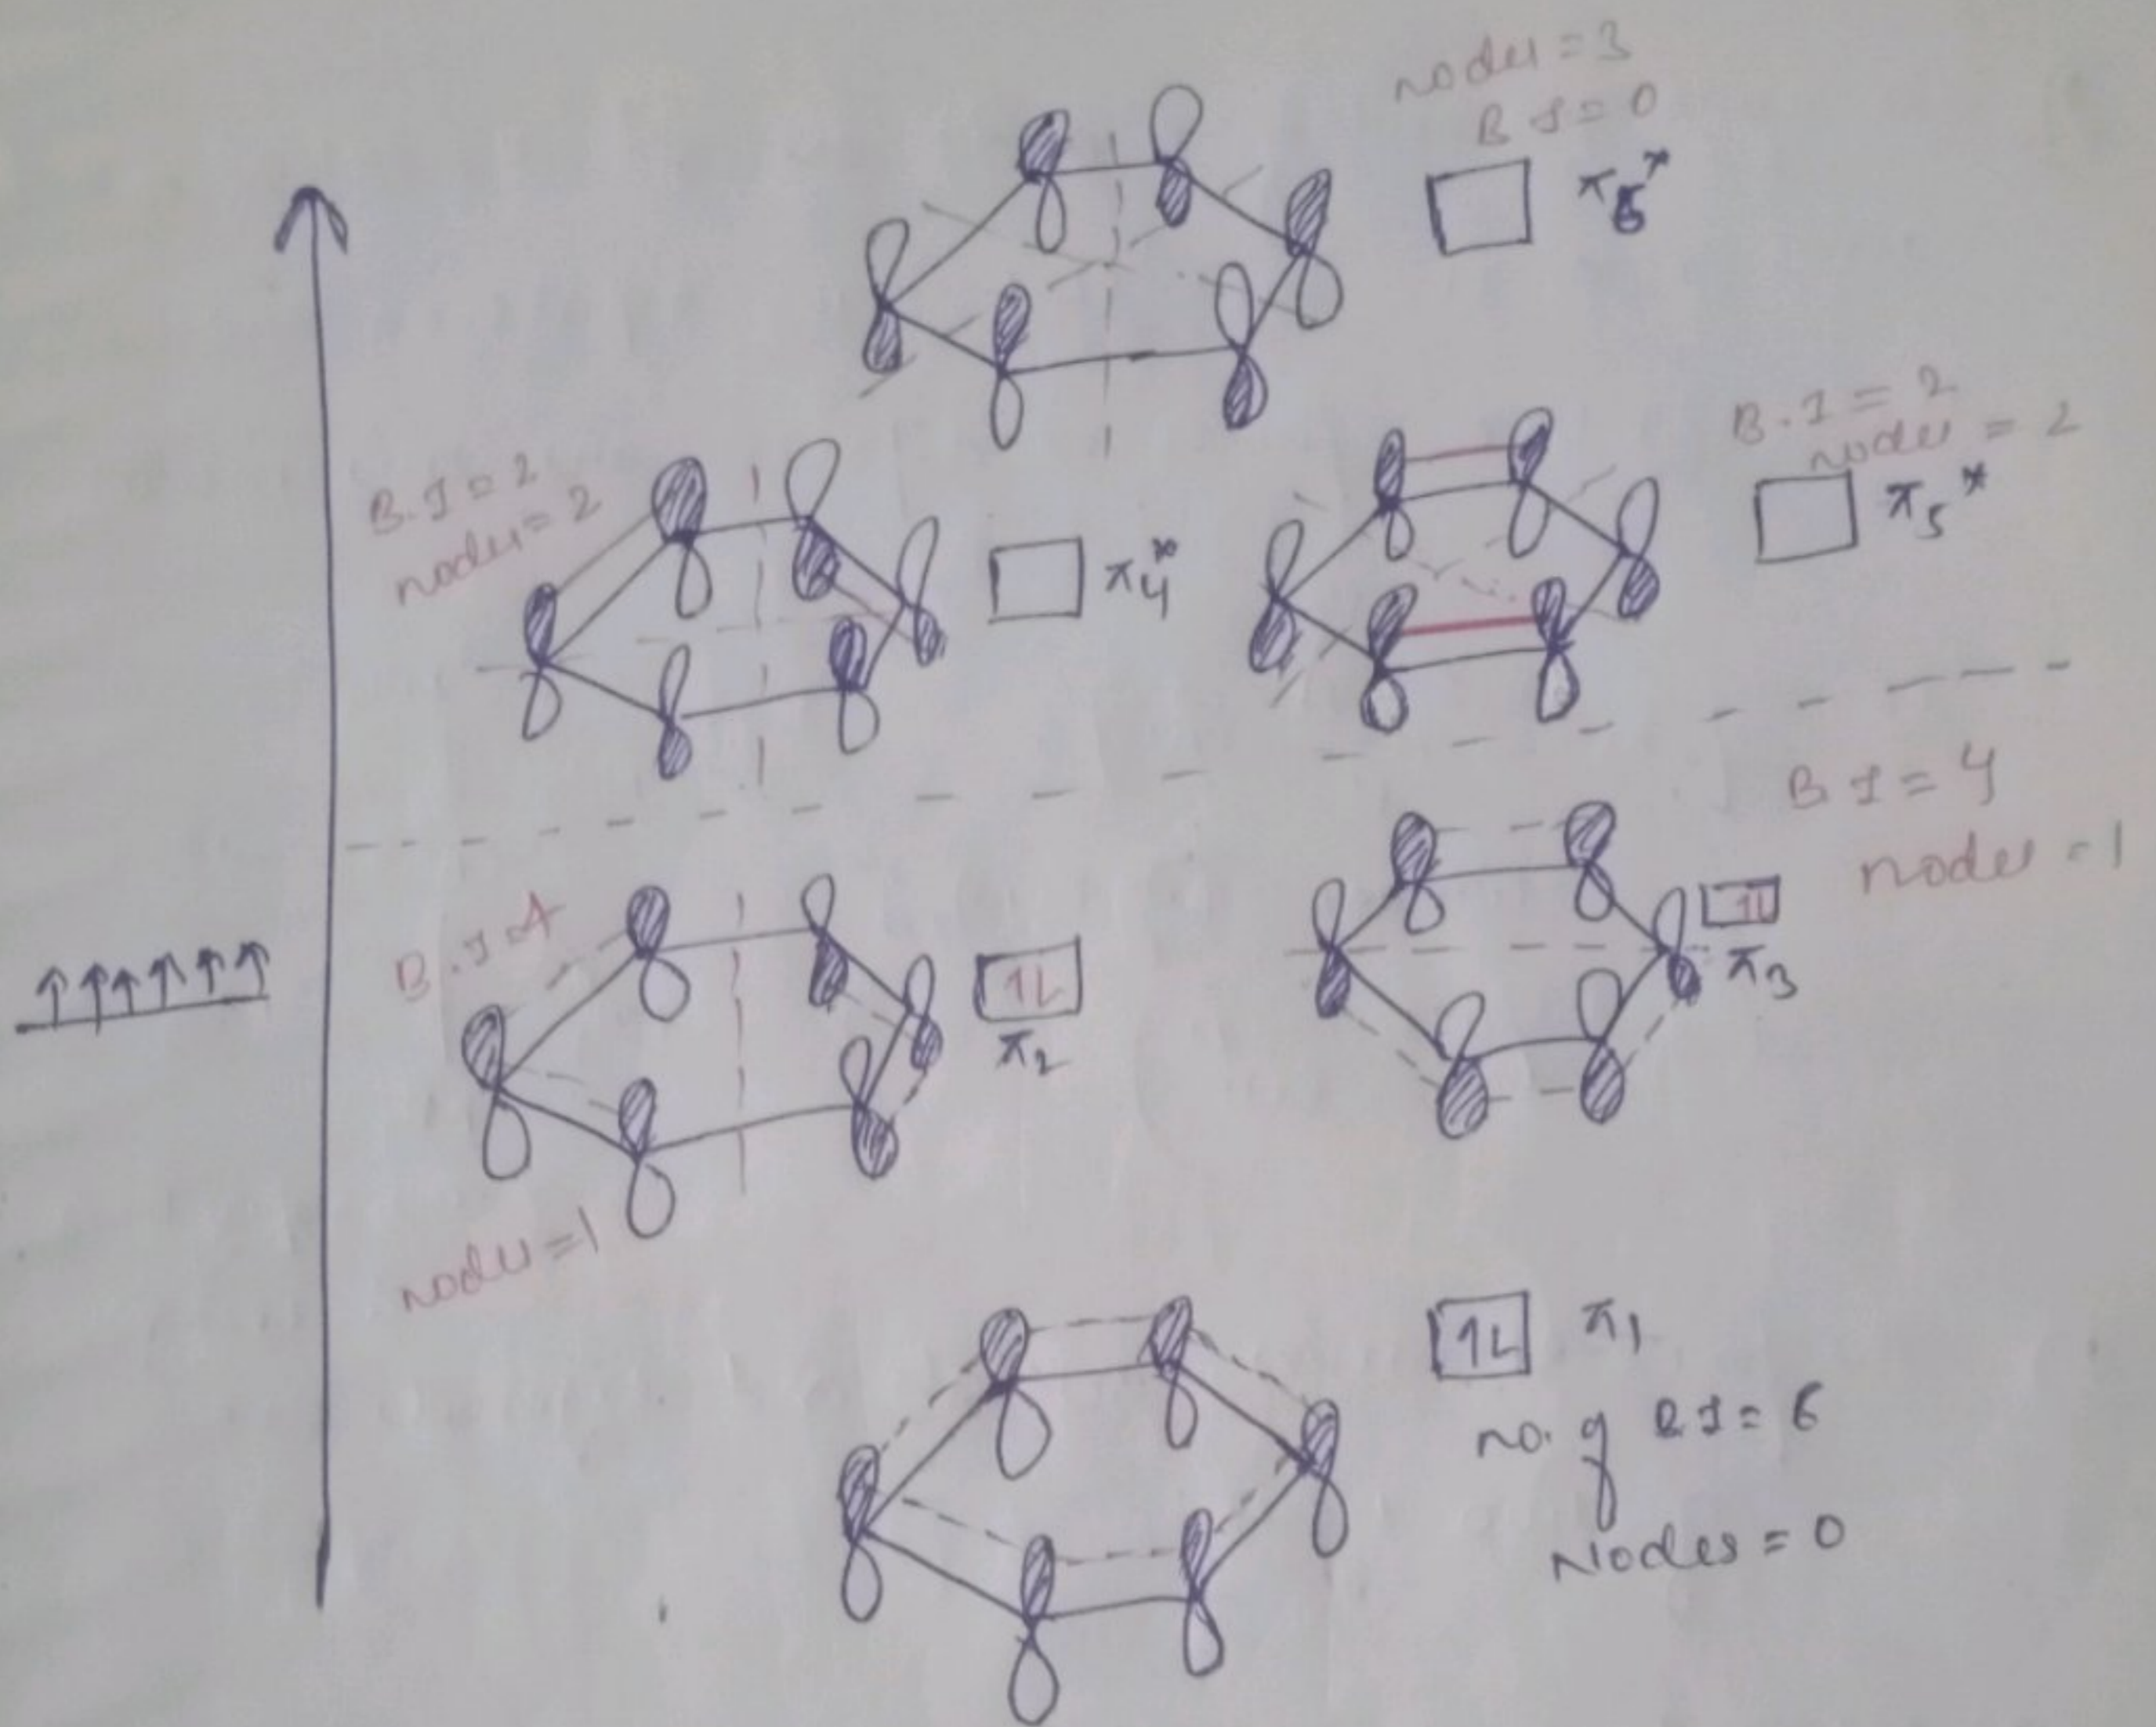 nodes = 3
B I = 0
π6*
B. I = 2
nodes = 2
π4*
B. I = 2
nodes = 2
π5*
B. I = 4
nodes = 1
1L
π2
B I = 4
nodes = 1
1L
π3
1L π1
no. of B I = 6
Nodes = 0